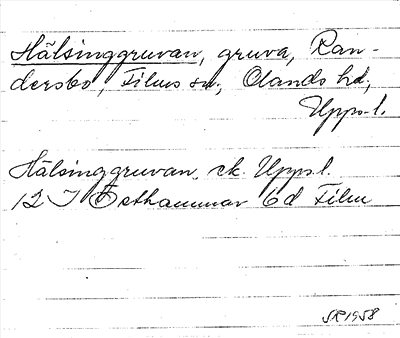 Hälsinggruvan, gruva, Ran-
dersbo, Films sn, Olands hd,
Upps. l.
Hälsinggruvan, ek. Upps. l.
12 I Östhammar 6d Film
SR 1958